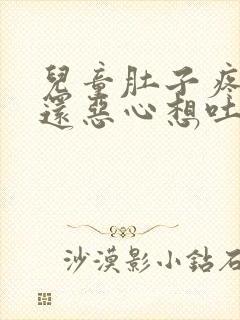 兒童肚子疼
還惡心想吐
沙漠影小鉆石